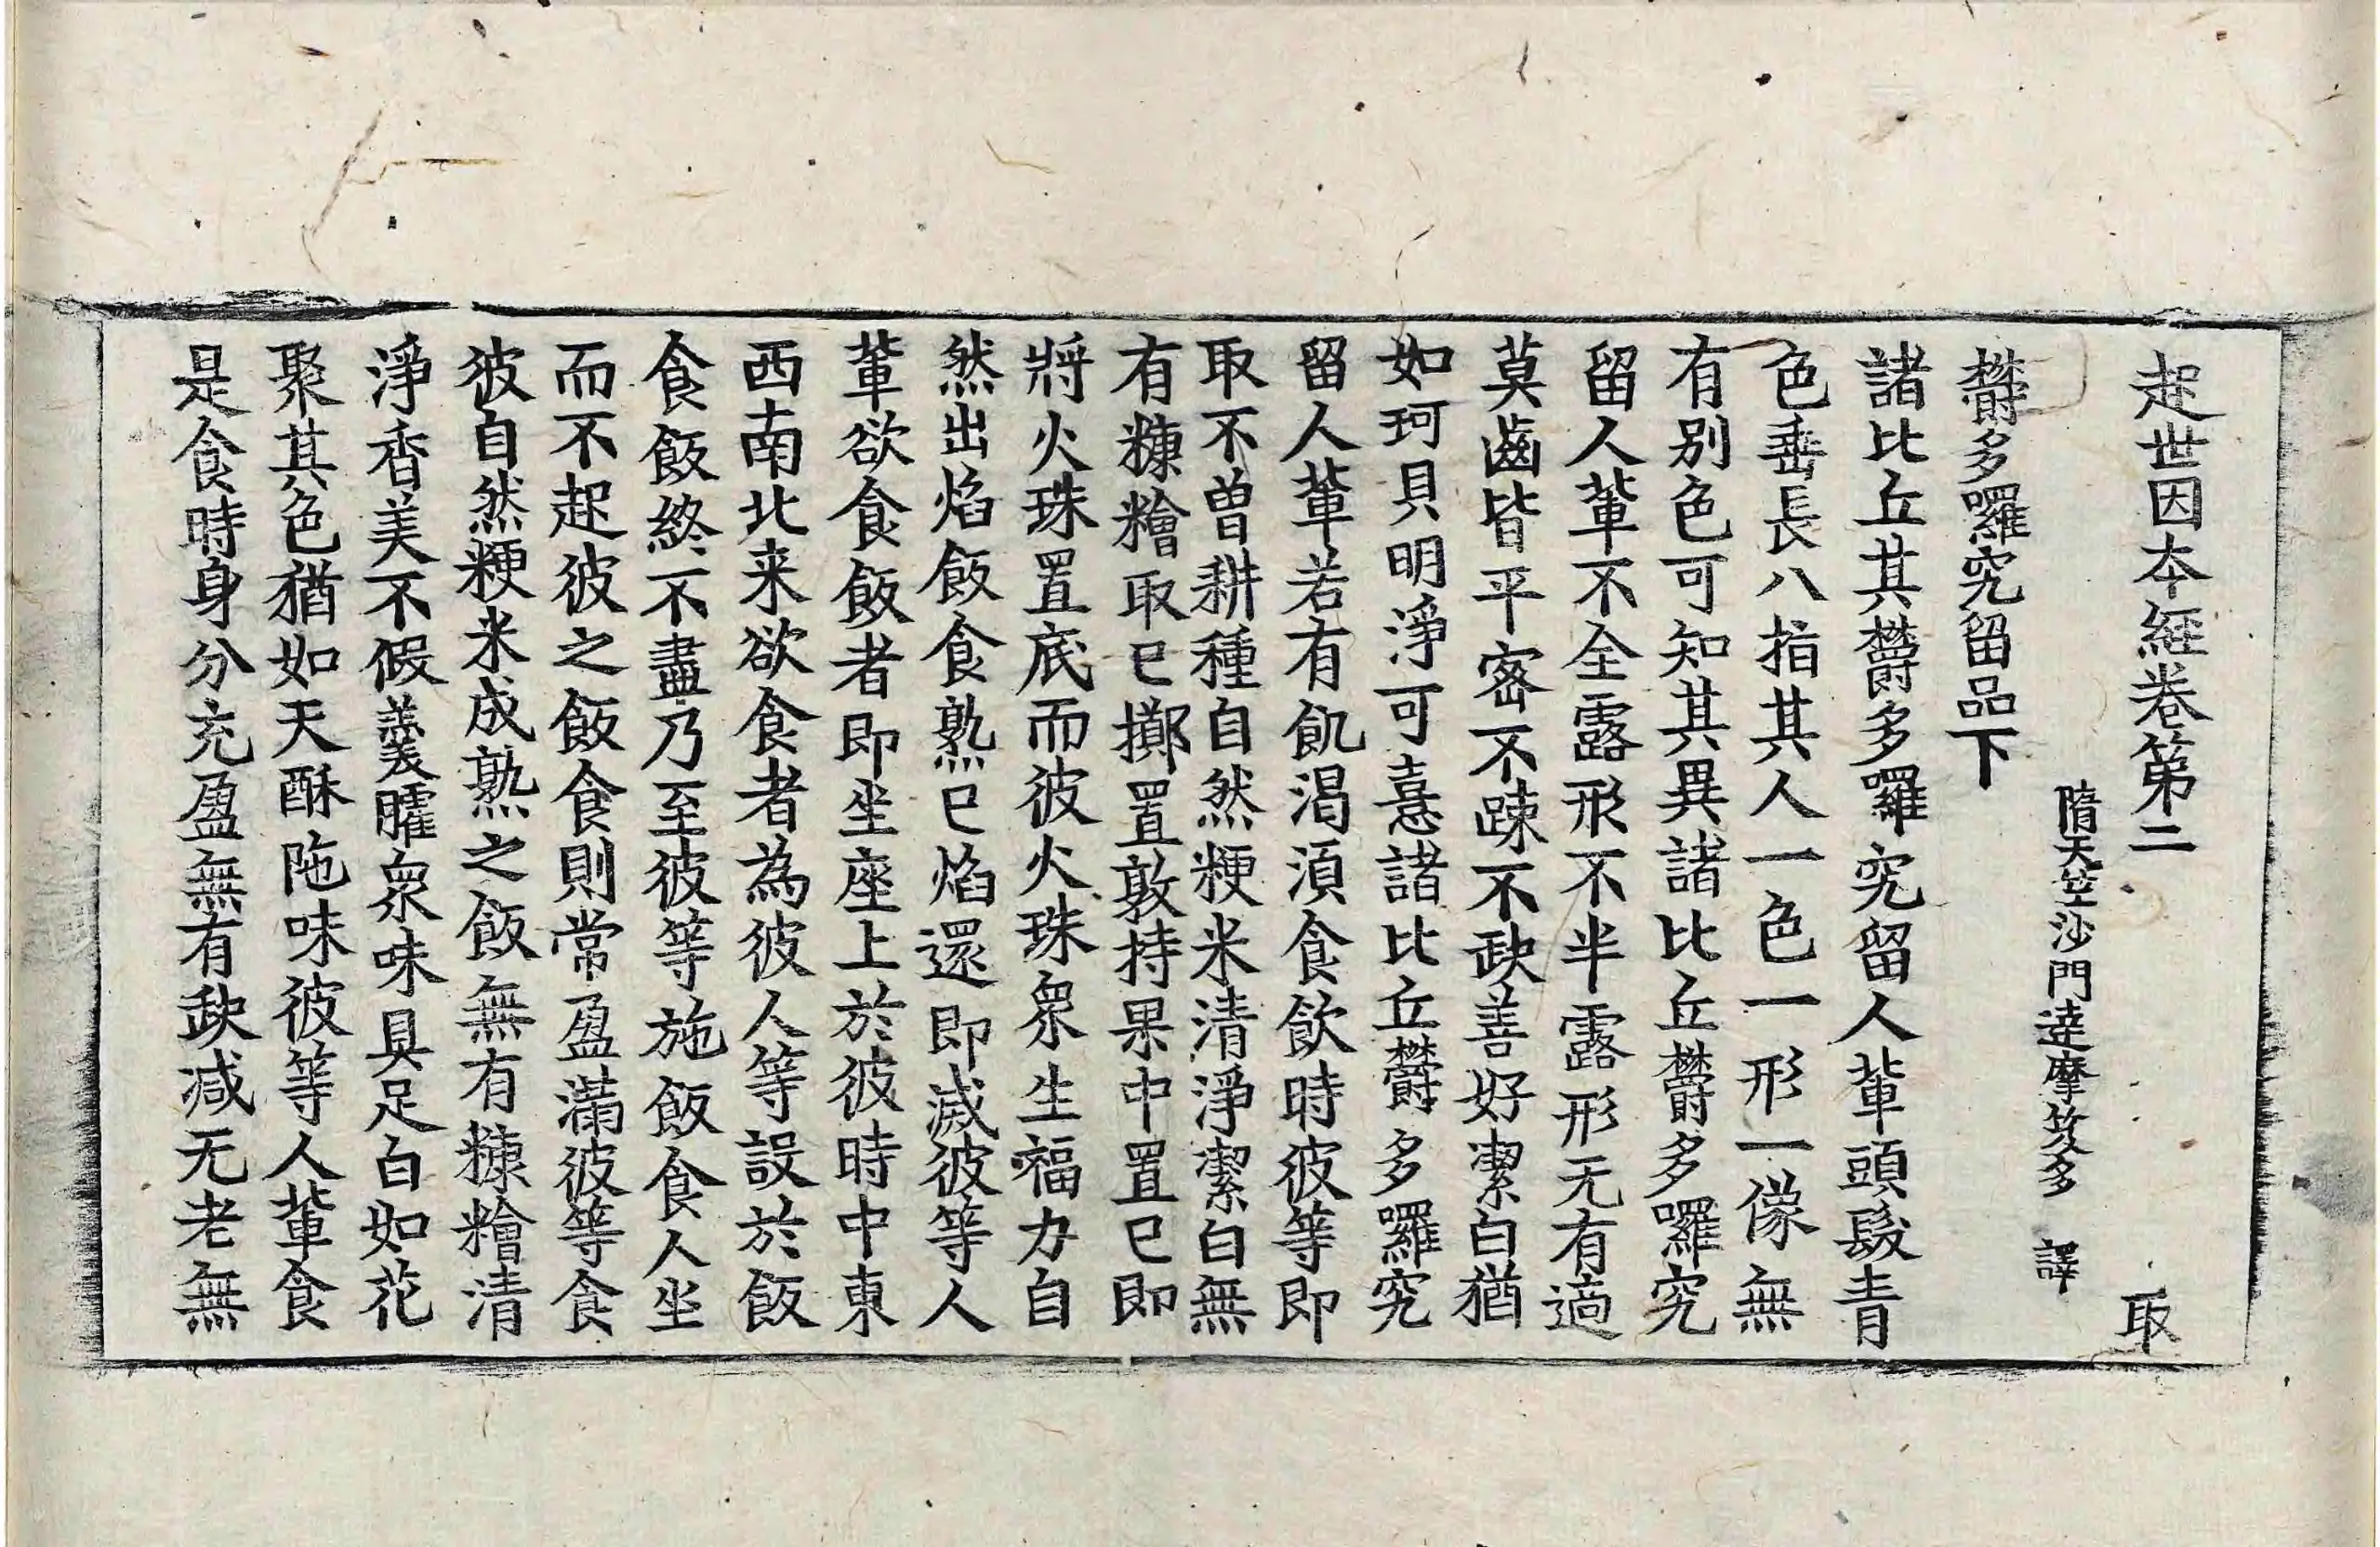 起世因本經卷第二 取
隋天竺沙門達摩笈多 譯
欝多囉究留品下
諸比丘其欝多囉究留人輩頭髮青
色垂長八指其人一色一形一像無
有別色可知其異諸比丘欝多囉究
留人輩不全露形不半露形无有適
莫齒皆平密不踈不缺善好潔白猶
如珂貝明淨可憙諸比丘欝多囉究
留人輩若有飢渴湏食飲時彼等即
取不曽耕種自然粳米清淨潔白無
有糠糩取已擲置敦持果中置已即
將火珠置底而彼火珠衆生福力自
然出焰飯食熟已焰還即滅彼等人
輩欲食飯者即坐座上於彼時中東
西南北来欲食者為彼人等設於飯
食飯終不盡乃至彼等施飯食人坐
而不起彼之飯食則常盈滿彼等食
彼自然粳米成熟之飯無有糠糩清
淨香美不假羹臛衆味具足白如花
聚其色猶如天酥陁味彼等人輩食
是食時身分充盈無有缺减无老無